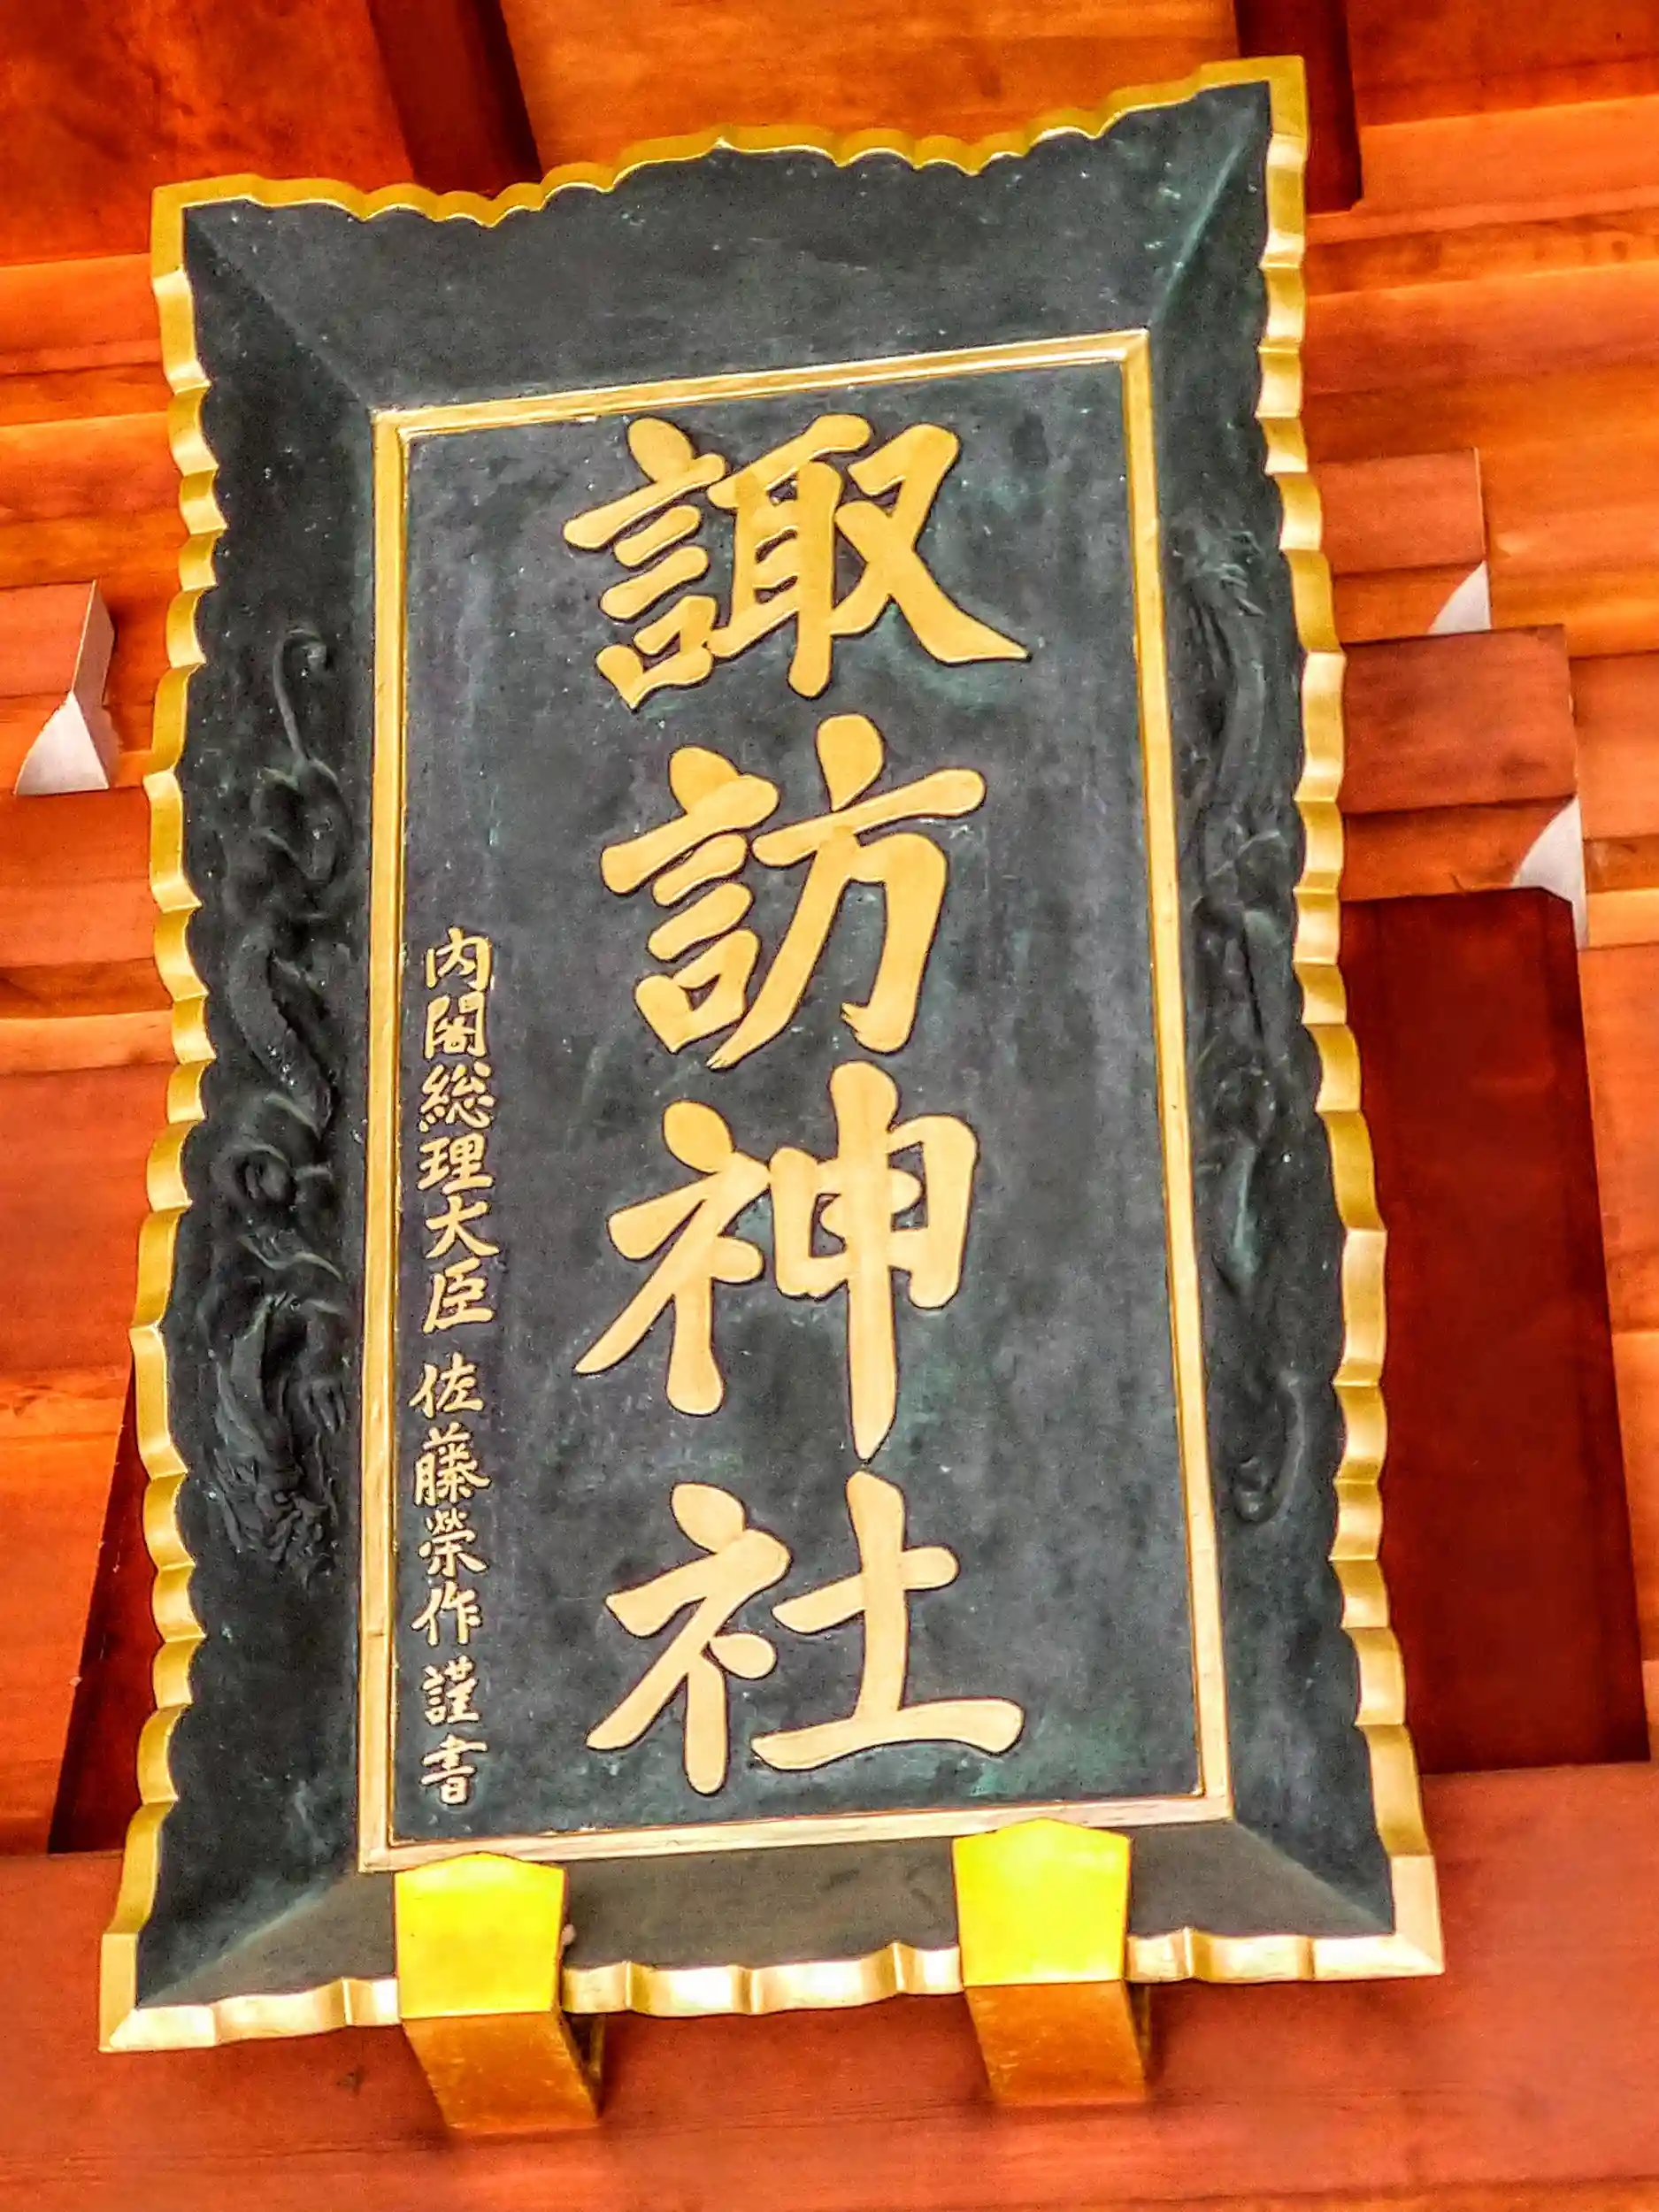 諏訪神社
内閣総理大臣 佐藤榮作 謹書